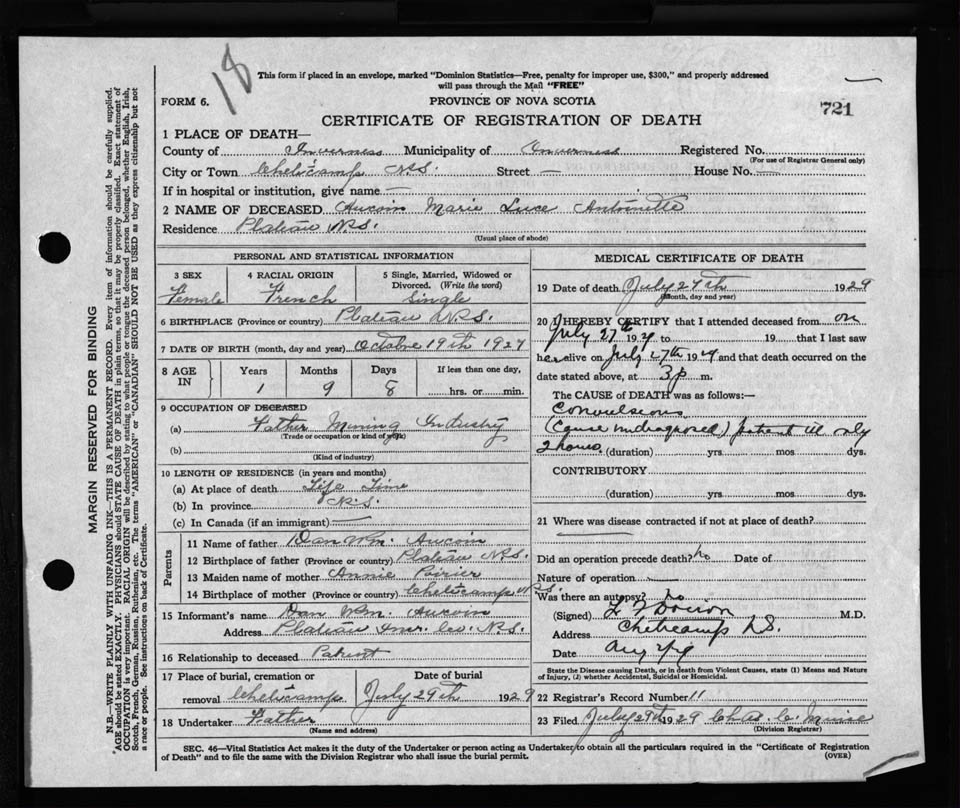 18
This form if placed in an envelope, marked "Dominion Statistics—Free, penalty for improper use, $300," and properly addressed
will pass through the Mail "FREE"
FORM 6.
PROVINCE OF NOVA SCOTIA
721
CERTIFICATE OF REGISTRATION OF DEATH
1 PLACE OF DEATH—
County of Inverness Municipality of Inverness Registered No.
(For use of Registrar General only)
City or Town Cheticamp N.S. Street — House No. —
If in hospital or institution, give name —
2 NAME OF DECEASED Aucoin Marie Luce Antoinette
Residence Plateau N.S.
(Usual place of abode)
PERSONAL AND STATISTICAL INFORMATION
3 SEX 4 RACIAL ORIGIN 5 Single, Married, Widowed or
Divorced. (Write the word)
Female French Single
6 BIRTHPLACE (Province or country) Plateau N.S.
7 DATE OF BIRTH (month, day and year) Octobre 19th 1927
8 AGE IN Years Months Days If less than one day,
1 9 8 hrs. or min.
9 OCCUPATION OF DECEASED
(a) Father Mining Industry
(Trade or occupation or kind of work)
(b)
(Kind of industry)
10 LENGTH OF RESIDENCE (in years and months)
(a) At place of death Life Time
(b) In province N.S.
(c) In Canada (if an immigrant) —
Parents
11 Name of father Dan Wm. Aucoin
12 Birthplace of father (Province or country) Plateau N.S.
13 Maiden name of mother Annie Poirier
14 Birthplace of mother (Province or country) Cheticamp N.S.
15 Informant's name Dan Wm. Aucoin
Address Plateau Inv. Co. N.S.
16 Relationship to deceased Parent
17 Place of burial, cremation or Date of burial
removal Cheticamp July 29th 1929
18 Undertaker Father
(Name and address)
MEDICAL CERTIFICATE OF DEATH
19 Date of death July 27th 1929
(Month, day and year)
20 I HEREBY CERTIFY that I attended deceased from on
July 27th 1929 to 19 that I last saw
her alive on July 27th 1929 and that death occurred on the
date stated above, at 3 p m.
The CAUSE of DEATH was as follows:—
Convulsions
(Cause undiagnosed) patient ill only
2 hours. (duration) yrs. mos. dys.
CONTRIBUTORY
(duration) yrs. mos. dys.
21 Where was disease contracted if not at place of death?
Did an operation precede death? no Date of
Nature of operation —
Was there an autopsy? no
(Signed) M.D.
Address Cheticamp N.S.
Date Aug
State the Disease causing Death, or in death from Violent Causes, state (1) Means and Nature
of Injury, (2) whether Accidental, Suicidal or Homicidal.
22 Registrar's Record Number 11
23 Filed July 29th 1929 Chas. C. Muise
(Division Registrar)
SEC. 46—Vital Statistics Act makes it the duty of the Undertaker or person acting as Undertaker to obtain all the particulars required in the "Certificate of Registration
of Death" and to file the same with the Division Registrar who shall issue the burial permit. (OVER)
MARGIN RESERVED FOR BINDING
N.B.—WRITE PLAINLY WITH UNFADING INK—THIS IS A PERMANENT RECORD. Every item of information should be carefully supplied.
AGE should be stated EXACTLY. PHYSICIANS should STATE CAUSE OF DEATH in plain terms, so that it may be properly classified. Exact statement of
OCCUPATION is very important. RACIAL ORIGIN will be described by stating to what people or tongue the deceased person belonged, whether English, Irish,
Scotch, French, German, Russian, Ruthenian, etc. The terms "AMERICAN" or "CANADIAN" SHOULD NOT BE USED as they express citizenship but not
a race or people. See instructions on back of Certificate.